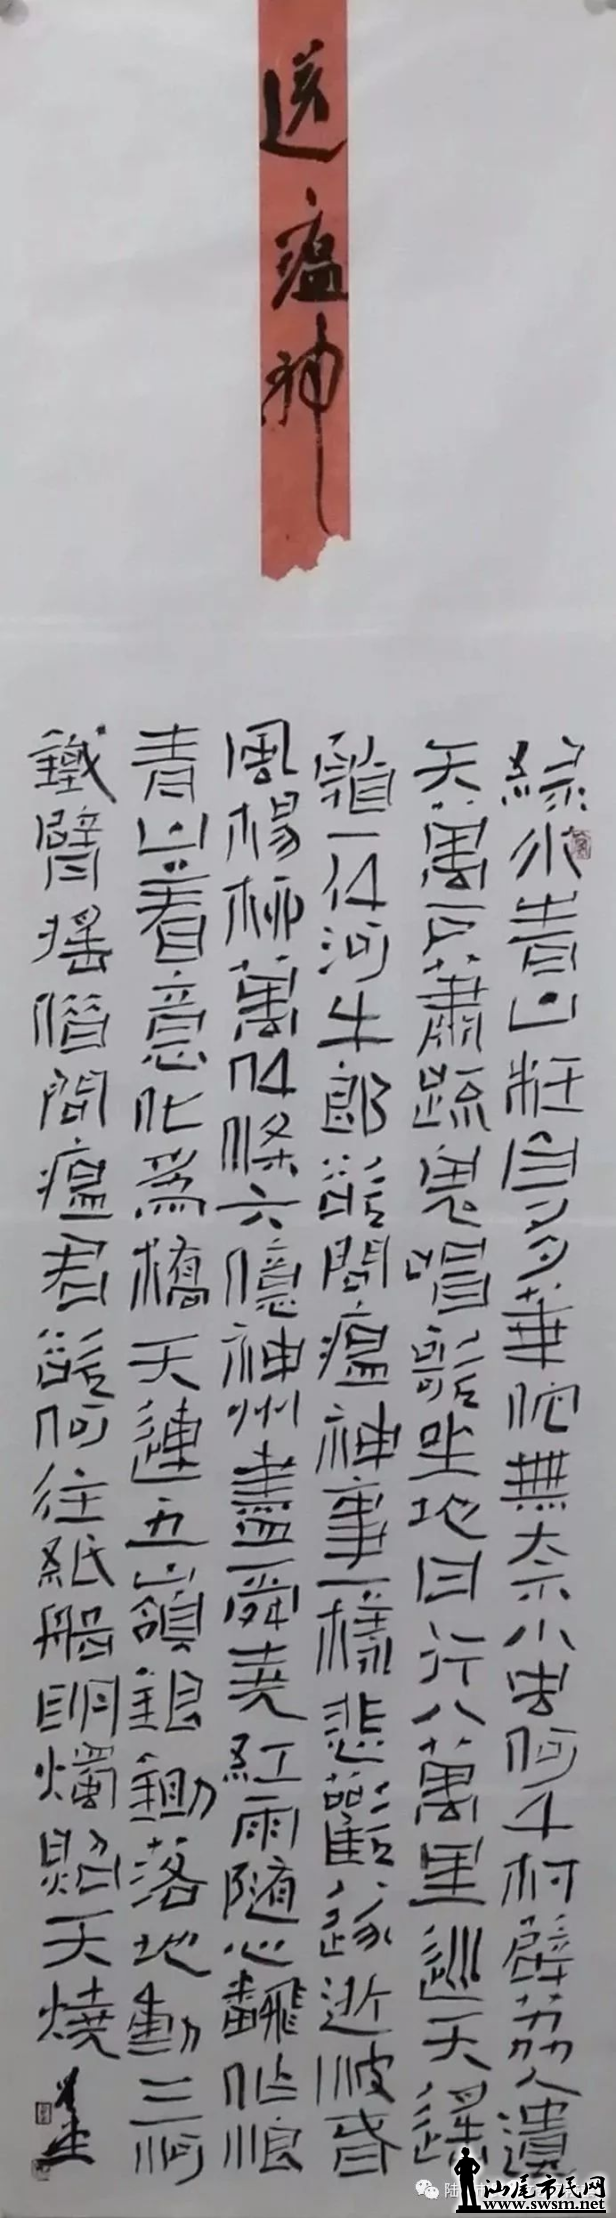 送瘟神
綠水青山枉自多華陀無奈小虫何千村薜荔人遺
矢萬戶蕭疏鬼唱歌坐地日行八萬里巡天遙
看一千河牛郎欲問瘟神事一樣悲歡逐逝波春
風楊柳萬千條六億神州盡舜堯紅雨隨心翻作浪
青山着意化為橋天連五嶺銀鋤落地動三河
鐵臂搖借問瘟君欲何往紙船明燭照天燒
汕尾市民网
www.swsm.net